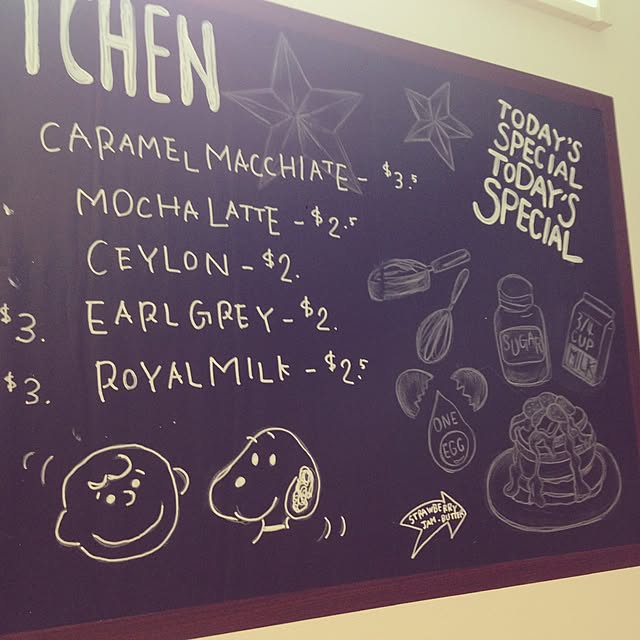 TCHEN
CARAMEL MACCHIATE - $3.5
MOCHA LATTE - $2.5
CEYLON - $2.
$3. EARL GREY - $2.
$3. ROYAL MILK - $2.5
TODAY'S
SPECIAL
TODAY'S
SPECIAL
SUGAR
3/4
CUP
MILK
ONE
EGG
STRAWBERRY
JAM. BUTTER